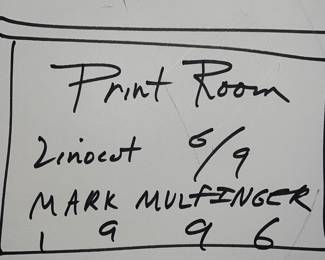 Print Room
Linocut 6/9
MARK MULFINGER
1996